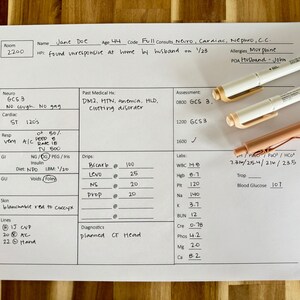 Room: 2200
Name Jane Doe Age 44 Code Full Consults Neuro, Cardiac, Nephro, C.C.
HPI found unresponsive at home by husband on 1/23
Allergies Morphine
POA Husband - John
Neuro
GCS 3
No cough, No gag
Cardiac
ST 120s
Resp
very A/C
Past Medical Hx:
DM2, HTN, anemia, HLD,
Clotting disorder
Assessment:
0800 GCS 3
1200 GCS 3
1600 ✓
GI
NG/OG/PEG/PO
Insulin
Diet: NPO
GU
Voids/Foley
Skin
blanchable red to coccyx
Lines
R IJ CVP
20 R AC
22 L Hand
Drips:
Bicarb @ 100
Levo @ 25
NS @ 20
Prop @ 20
@
@
@
Diagnostics
planned CT Head
Labs:
WBC 14.8
Hgb 8.7
Plt 120
Na 140
K 3.7
BUN 12
Cre 0.78
Phos 4.2
Mg 2.0
Ca 8.2
Trop
Blood Glucose 107